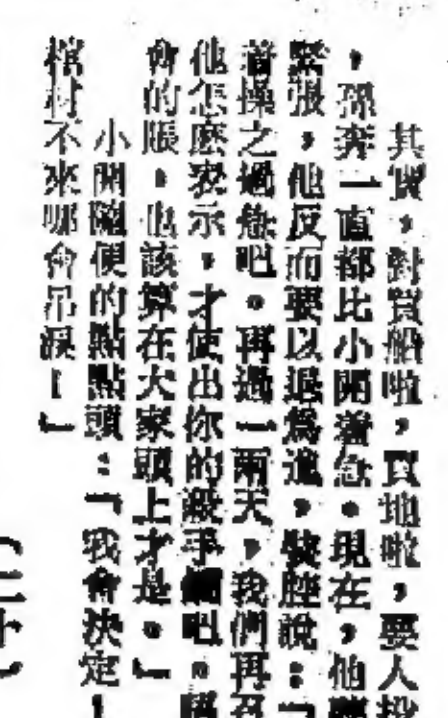 其實，對買船啦，買地啦，要人投
，孫奔一直都比小開着急。現在，他
緊張，他反而要以退爲進，裝腔說：「
着操之過急吧。再過一兩天，我們再召
他怎麼表示，才使出你的殺手鐧吧。
會的賬，也該算在大家頭上才是。」
小開隨便的點點頭：「我會決定！
棺材不來哪會吊淚！」